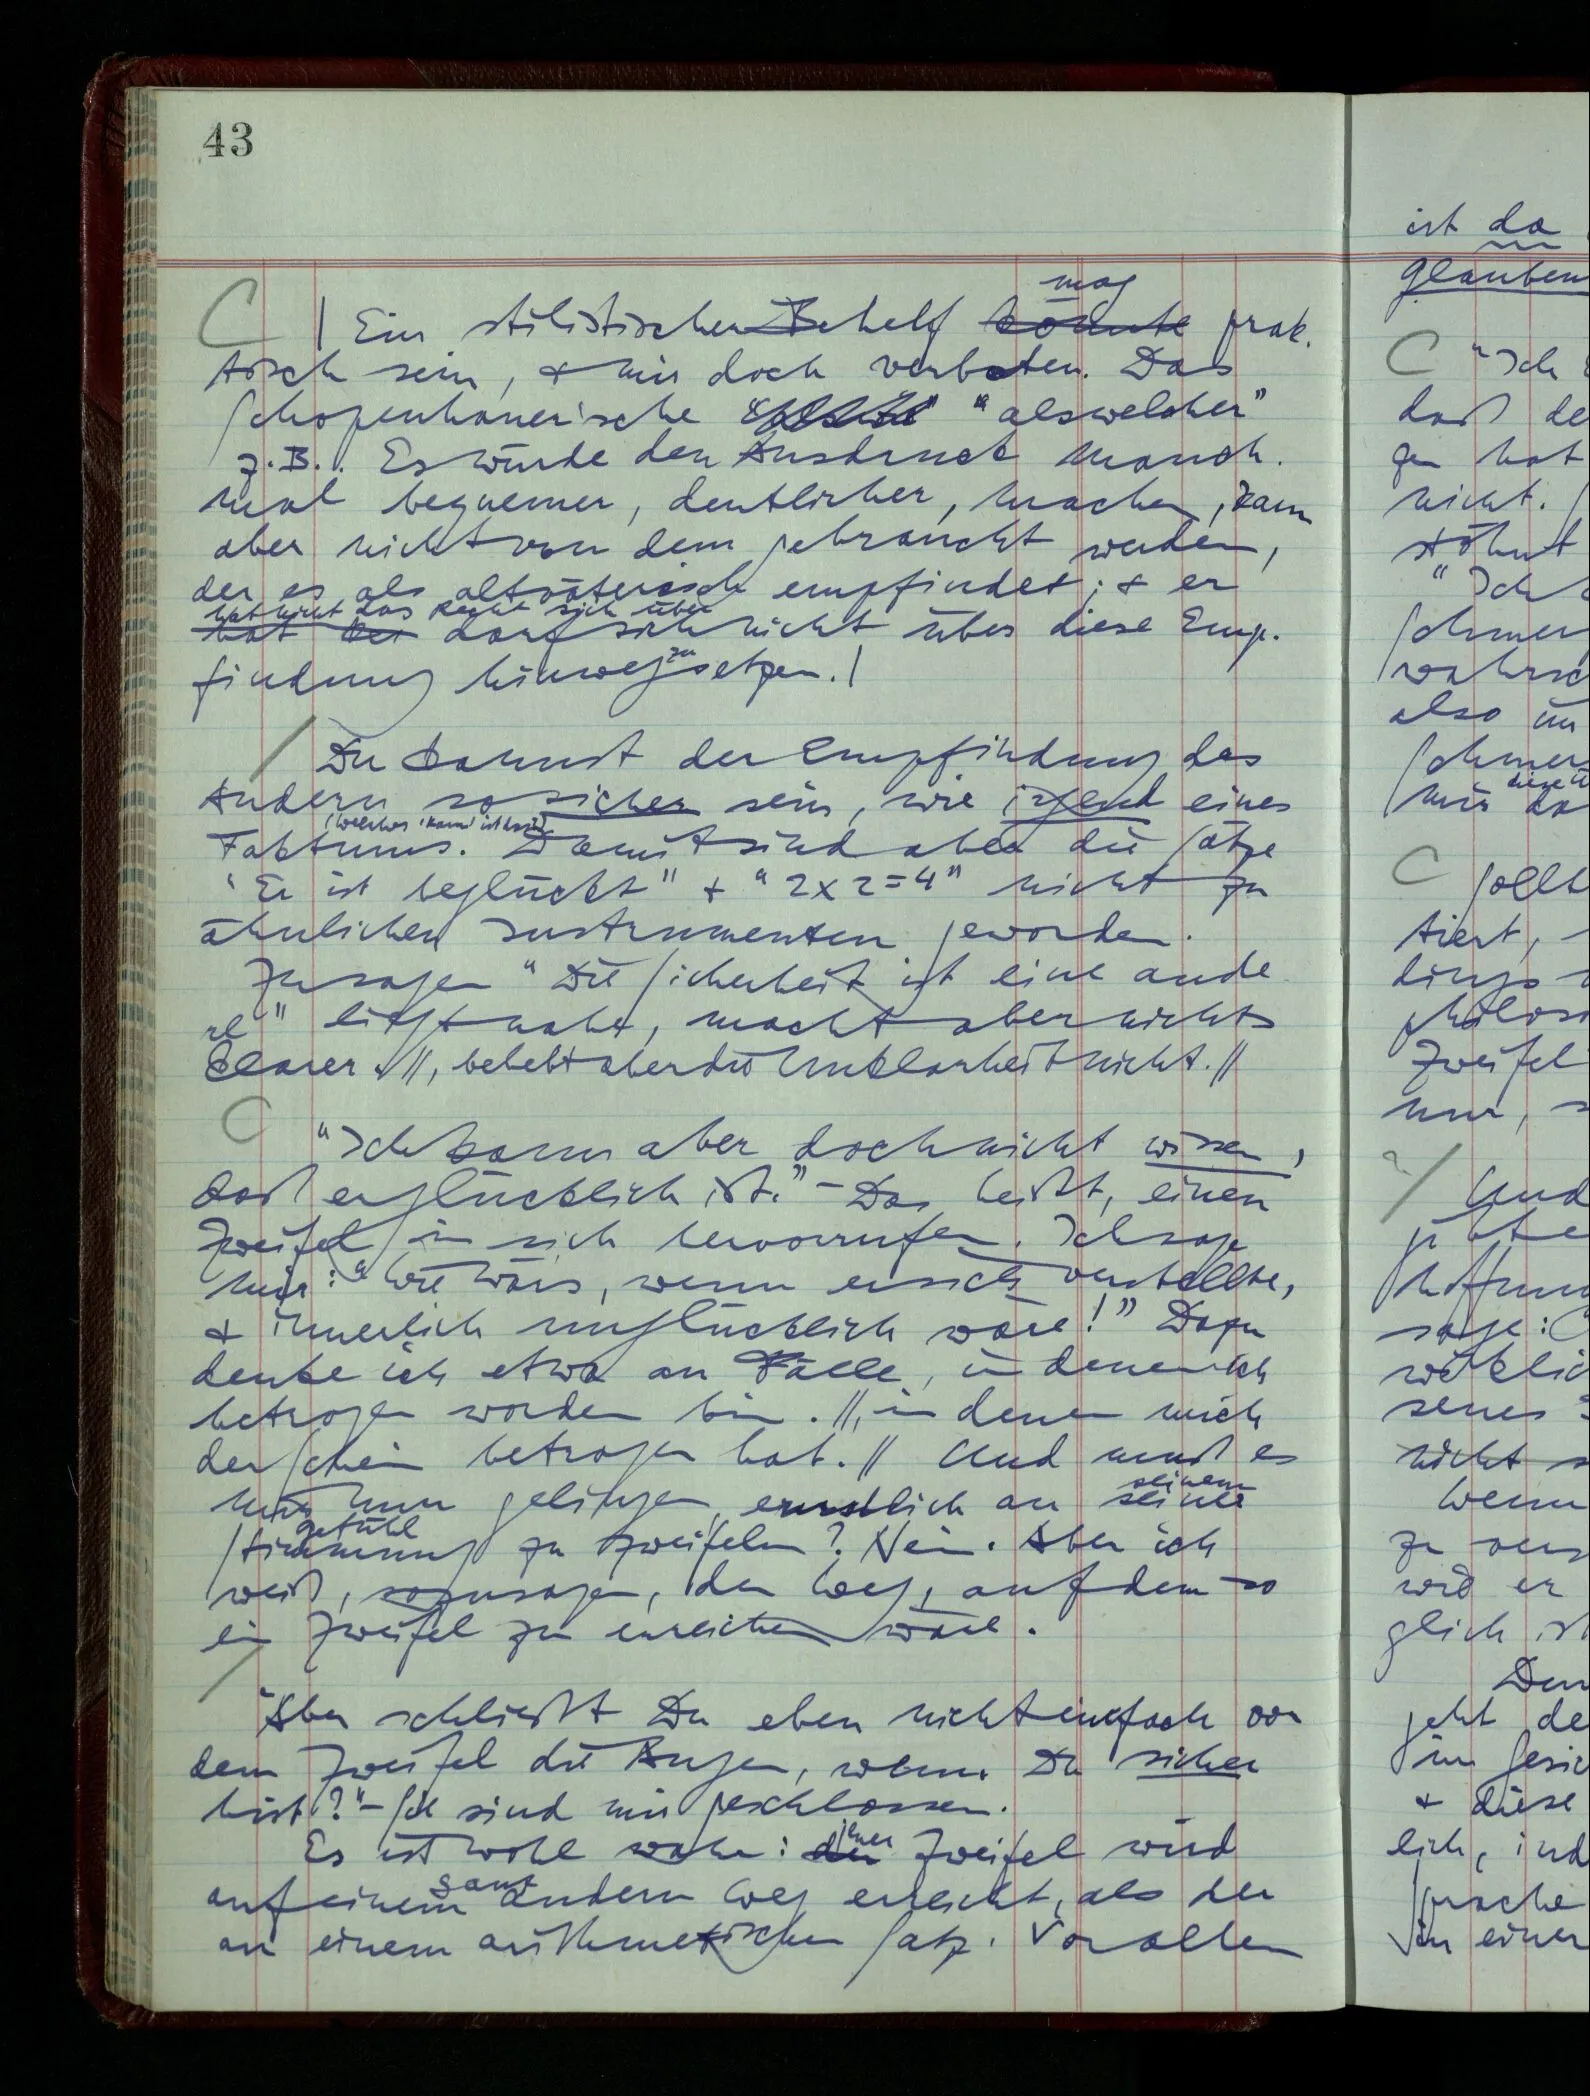 43
C | Ein stilistischer Behelf könnte mag prak-
tisch sein, & mir doch verboten. Das
Schopenhauerische "alswelcher"
z.B.. Es würde den Ausdruck manch-
mal bequemer, deutlicher, machen, kann
aber nicht von dem gebraucht werden,
der es als altväterisch empfindet; & er
hat nicht das Recht sich über
hat darf sich nicht über diese Emp-
findung hinwegzusetzen. |
/ Du kannst der Empfindung des
Andern so sicher sein, wie irgend eines
Faktums. Damit sind aber die Sätze
"Er ist beglückt" & "2×2=4" nicht zu
ähnlichen Instrumenten geworden.
Zu sagen "Die Sicherheit ist eine ande-
re" liegt nahe, macht aber nichts
klarer. //, behebt aber die Unklarheit nicht. //
C "Ich kann aber doch nicht wissen,
daß er glücklich ist." – Das heißt, einen
Zweifel in sich hervorrufen. Ich sage
mir: "Wie wär's, wenn er sich verstellte,
& innerlich unglücklich wäre!" Dazu
denke ich etwa an Fälle, in denen ich
betrogen worden bin. //, in denen mich
der Schein betrogen hat. // Und muß es
mir nun gelingen, ernstlich an seiner seinem
Stimmung Gefühl zu zweifeln? Nein. Aber ich
weiß, sozusagen, den Weg, auf dem so
ein Zweifel zu erreichen wäre.
/ "Aber schließt Du eben nicht einfach vor
dem Zweifel die Augen, wenn Du sicher
bist?" – Sie sind mir geschlossen.
Es ist wohl wahr: der jener Zweifel wird
auf einem ganz andern Weg erreicht, als der
an einem arithmetischen Satz. Vor allem
ist da
glauben
C "Ich
daß de
gen hat
nicht.
stöhnt
"Ich
Schmer
also im
Schmer
mir da
C Sollt
tiert,
dings
philoso
Zweifel
nur, s
? / Und
Hoffnung
sage:
wirklic
nicht s
Wenn
zu vers
wird er
glich ist
Den
geht de
im Gesic
& diese
lich, ind
Sprache
in einer